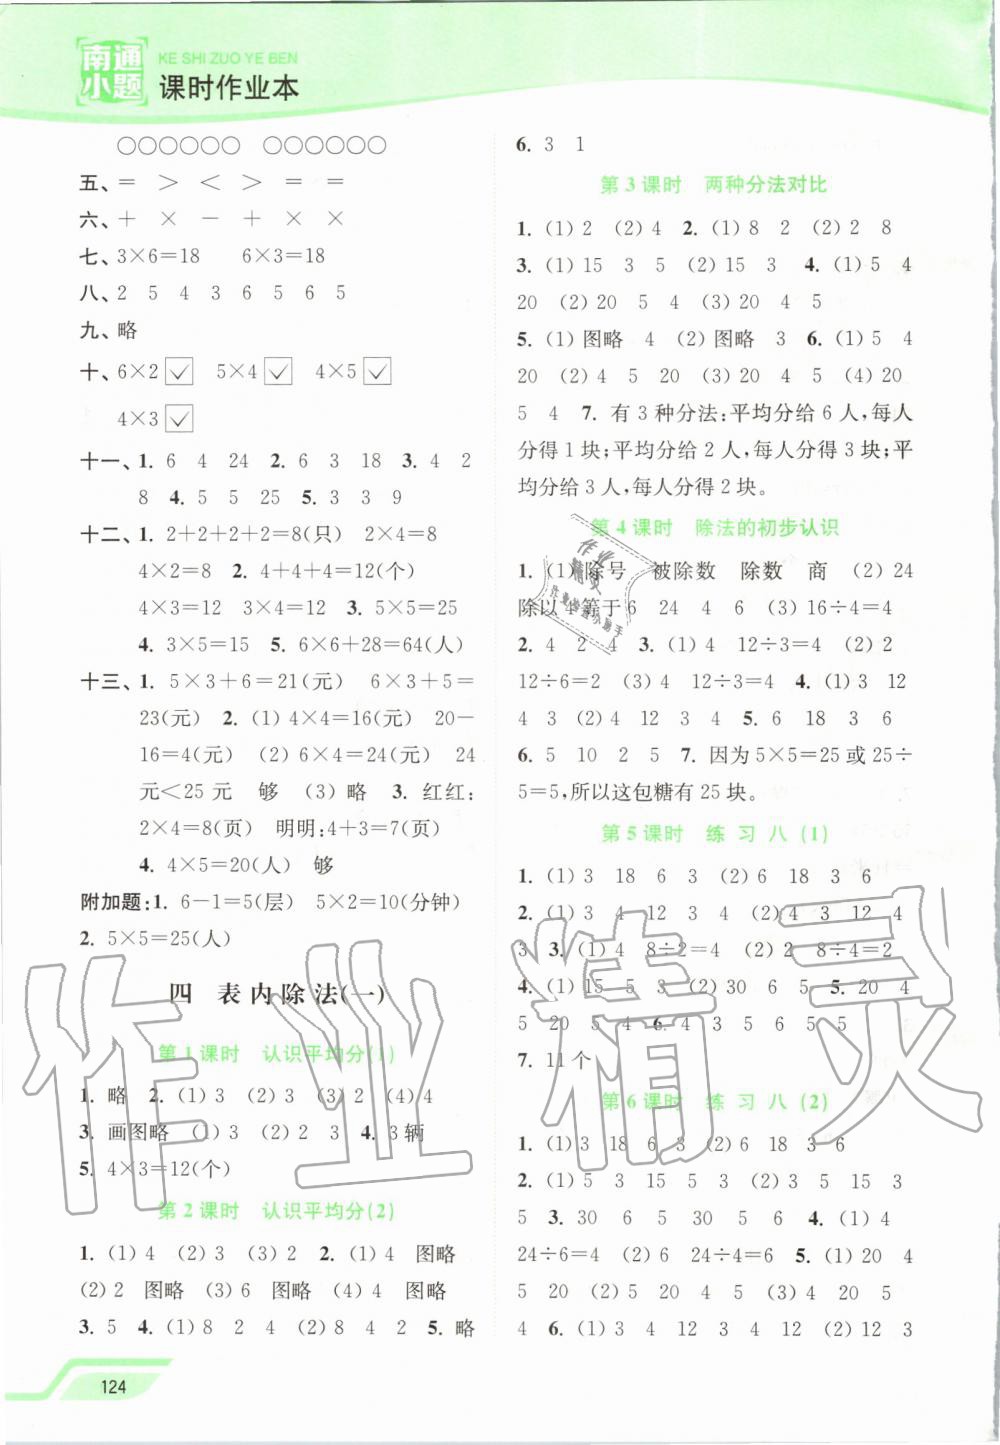 南通小题
KE SHI ZUO YE BEN
课时作业本
○○○○○○ ○○○○○○
五、= > < > = =
六、+ × − + × ×
七、3×6=18 6×3=18
八、2 5 4 3 6 5 6 5
九、略
十、6×2 ✓ 5×4 ✓ 4×5 ✓
4×3 ✓
十一、1. 6 4 24 2. 6 3 18 3. 4 2
8 4. 5 5 25 5. 3 3 9
十二、1. 2+2+2+2=8(只) 2×4=8
4×2=8 2. 4+4+4=12(个)
4×3=12 3×4=12 3. 5×5=25
4. 3×5=15 5. 6×6+28=64(人)
十三、1. 5×3+6=21(元) 6×3+5=
23(元) 2. (1) 4×4=16(元) 20−
16=4(元) (2) 6×4=24(元) 24
元<25元 够 (3) 略 3. 红红:
2×4=8(页) 明明:4+3=7(页)
4. 4×5=20(人) 够
附加题:1. 6−1=5(层) 5×2=10(分钟)
2. 5×5=25(人)
四 表内除法(一)
第1课时 认识平均分(1)
1. 略 2. (1) 3 (2) 3 (3) 2 (4) 4
3. 画图略 (1) 3 (2) 2 3 4. 3辆
5. 4×3=12(个)
第2课时 认识平均分(2)
1. (1) 4 (2) 3 (3) 2 2. (1) 4 图略
(2) 2 图略 (3) 6 图略 (4) 4 图略
3. 5 4. (1) 8 2 4 (2) 8 4 2 5. 略
124
6. 3 1
第3课时 两种分法对比
1. (1) 2 (2) 4 2. (1) 8 2 (2) 2 8
3. (1) 15 3 5 (2) 15 3 4. (1) 5 4
20 (2) 20 5 4 (3) 20 4 5
5. (1) 图略 4 (2) 图略 3 6. (1) 5 4
20 (2) 4 5 20 (3) 20 4 5 (4) 20
5 4 7. 有3种分法:平均分给6人,每人
分得1块;平均分给2人,每人分得3块;平
均分给3人,每人分得2块。
第4课时 除法的初步认识
1. (1) 除号 被除数 除数 商 (2) 24
除以4等于6 24 4 6 (3) 16÷4=4
2. 4 2 4 3. (1) 4 12÷3=4 (2) 2
12÷6=2 (3) 4 12÷3=4 4. (1) 3 12
4 3 (2) 4 12 3 4 5. 6 18 3 6
6. 5 10 2 5 7. 因为5×5=25或25÷
5=5,所以这包糖有25块。
第5课时 练习八(1)
1. (1) 3 18 6 3 (2) 6 18 3 6
2. (1) 3 4 12 3 4 (2) 4 3 12 4
3 3. (1) 4 8÷2=4 (2) 2 8÷4=2
4. (1) 15 5 3 (2) 30 6 5 5. 20 4
5 20 5 4 6. 4 3 5 6 5 5
7. 11个
第6课时 练习八(2)
1. (1) 3 18 6 3 (2) 6 18 3 6
2. (1) 5 3 15 5 3 (2) 3 5 15 3
5 3. 30 6 5 30 5 6 4. (1) 4
24÷6=4 (2) 6 24÷4=6 5. (1) 20 4
5 20 (2) 5 20 4 5 (3) 4 20 5
4 6. (1) 3 4 12 3 4 (2) 4 12 3
作业精灵
作业精灵